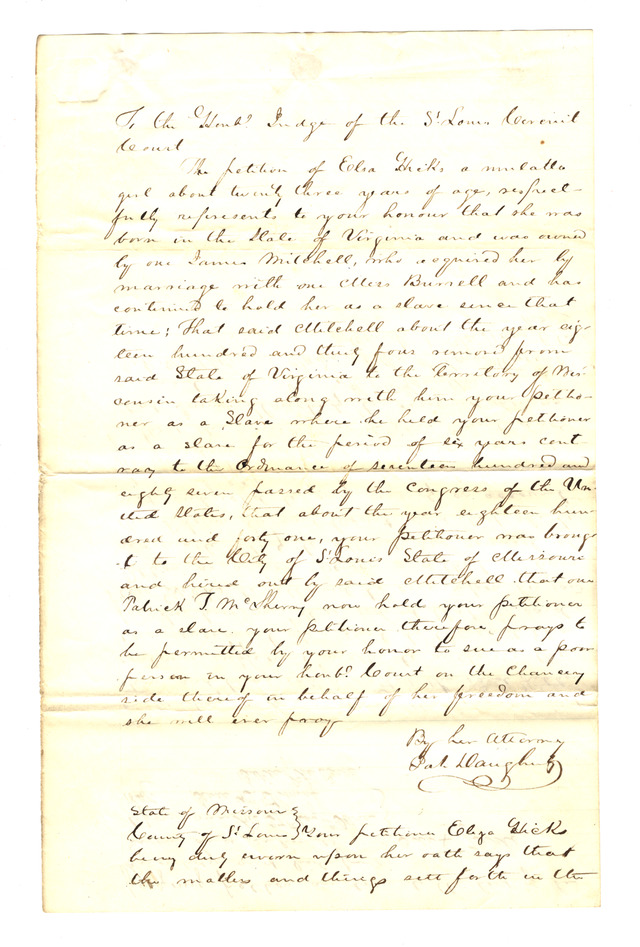 To the Honbl Judge of the St Louis Circuit
Court
The petition of Elsa Hicks a mulatto
girl about twenty three years of age, respect-
fully represents to your honour that she was
born in the State of Virginia and was owned
by one James Mitchell, who acquired her by
marriage with one Miss Burrell and has
continued to hold her as a slave since that
time; That said Mitchell about the year eig-
teen hundred and thirty four removd from
said State of Virginia to the Territory of Wis
consin taking along with him your petitio-
ner as a Slave where he held your petitioner
as a slave for the period of six years cont
rary to the Ordinance of seventeen hundred and
eighty seven passed by the Congress of the Uni-
ted States, that about the year eighteen hun-
dred and forty one, your petitioner was brough
t to the City of St Louis State of Missouri
and hired out by said Mitchell that one
Patrick T. McSherry now hold your petitioner
as a slave. your petitioner therefore prays to
be permitted by your honor to sue as a poor
person in your honbl Court on the Chancery
side thereof on behalf of her freedom and
she will ever pray
By her Attorney
Pat Daugherty
State of Missouri
County of St Louis } Your petitioner Eliza Hicks
being duly sworn upon her oath says that
the matters and things sett forth in the